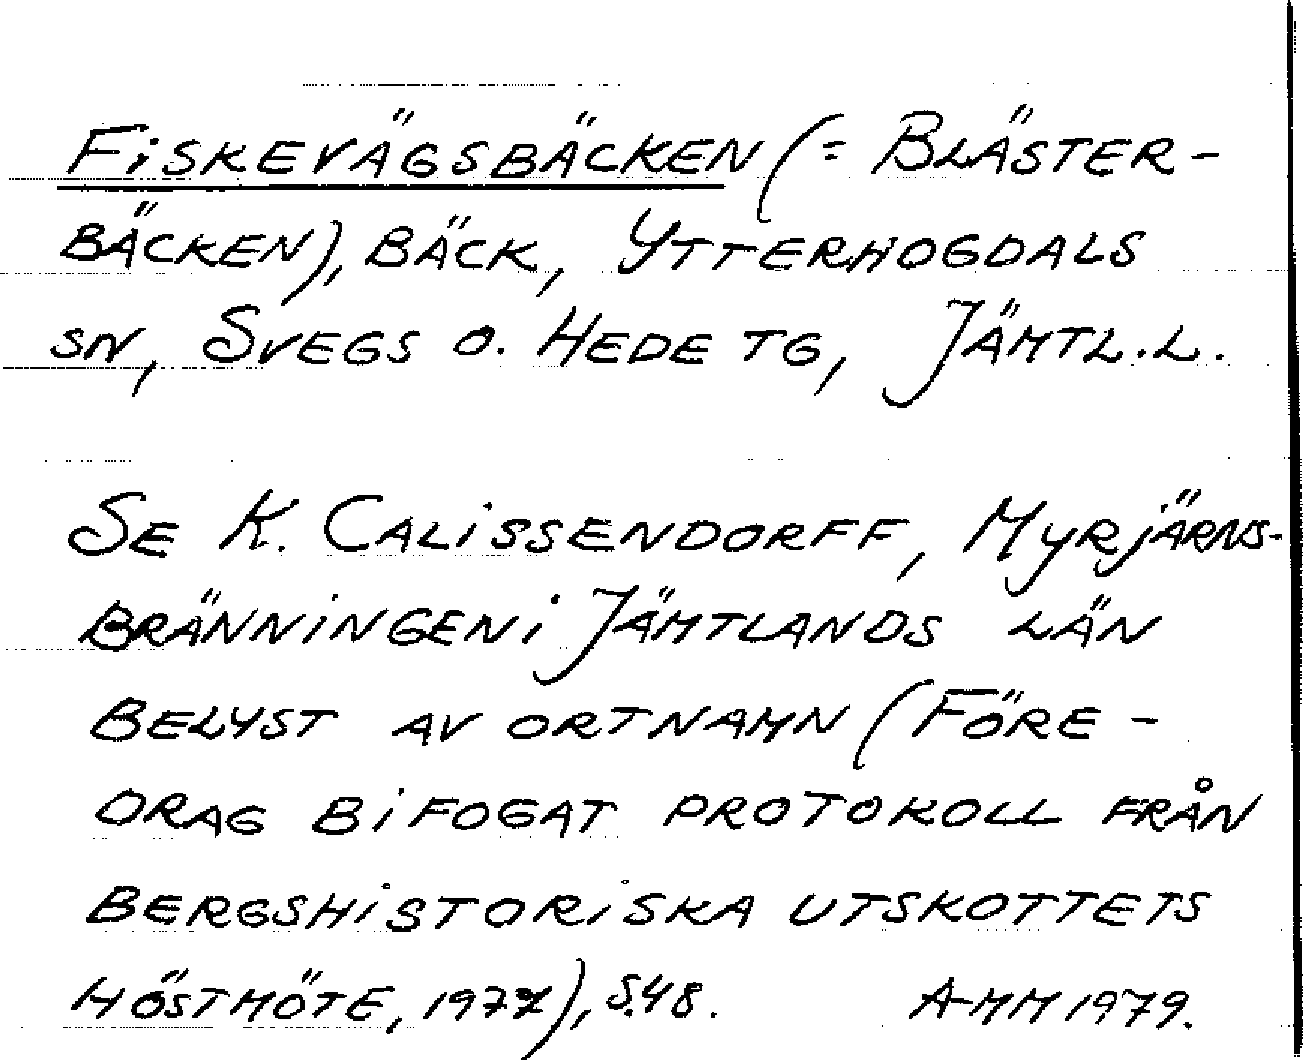 FISKEVÄGSBÄCKEN (= BLÄSTER-
BÄCKEN), BÄCK, YTTERHOGDALS
SN, SVEGS O. HEDE TG, JÄMTL.L.
SE K. CALISSENDORFF, MYRJÄRNS-
BRÄNNINGEN I JÄMTLANDS LÄN
BELYST AV ORTNAMN (FÖRE-
DRAG BIFOGAT PROTOKOLL FRÅN
BERGSHISTORISKA UTSKOTTETS
HÖSTMÖTE, 1977), S.48. A-MM 1979.